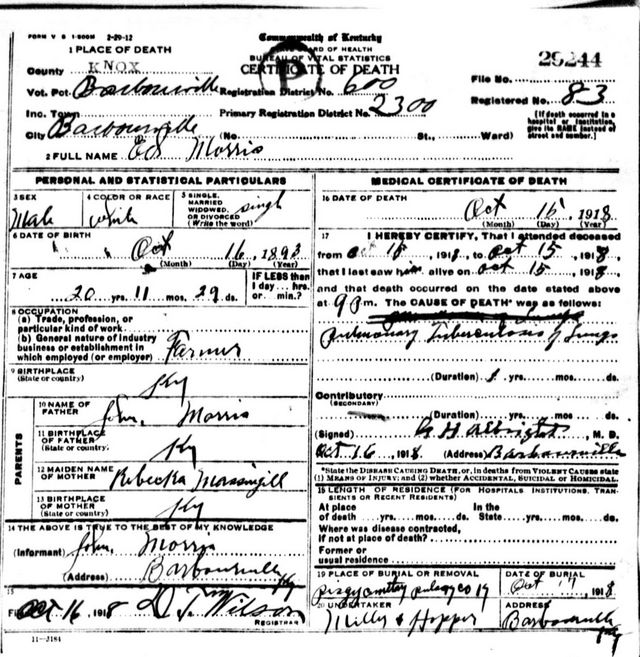 FORM V S 1-500M 2-29-12
Commonwealth of Kentucky
BOARD OF HEALTH
BUREAU OF VITAL STATISTICS
CERTIFICATE OF DEATH
29244
1 PLACE OF DEATH
County KNOX
File No.
Vot. Pct. Barbourville Registration District No. 600
Registered No. 83
Inc. Town Primary Registration District No. 2300
[If death occurred in a hospital or institution, give its NAME instead of street and number.]
City Barbourville (No. St., Ward)
2 FULL NAME Ed Morris
PERSONAL AND STATISTICAL PARTICULARS
3 SEX Male
4 COLOR OR RACE White
5 SINGLE, MARRIED WIDOWED, OR DIVORCED (Write the word) Single
6 DATE OF BIRTH
Oct 16, 1893
(Month) (Day) (Year)
7 AGE
20 yrs. 11 mos. 29 ds.
IF LESS than 1 day... hrs. or... min.?
8 OCCUPATION
(a) Trade, profession, or particular kind of work
(b) General nature of industry business or establishment in which employed (or employer) Farmer
9 BIRTHPLACE
(State or country) Ky
PARENTS
10 NAME OF FATHER John Morris
11 BIRTHPLACE OF FATHER
(State or country) Ky
12 MAIDEN NAME OF MOTHER Rebecka Massingill
13 BIRTHPLACE OF MOTHER
(State or country) Ky
14 THE ABOVE IS TRUE TO THE BEST OF MY KNOWLEDGE
(Informant) John Morris
(Address) Barbourville Ky
15
Oct 16 1918 Wilson
REGISTRAR
11-3184
MEDICAL CERTIFICATE OF DEATH
16 DATE OF DEATH
Oct 15, 1918
(Month) (Day) (Year)
17 I HEREBY CERTIFY, That I attended deceased
from Oct 15, 1918, to Oct 15, 1918,
that I last saw him alive on Oct 15, 1918,
and that death occurred on the date stated above
at 9 P m. The CAUSE OF DEATH* was as follows:
Pulmonary Tuberculosis of Lungs
(Duration) 1 yrs. mos. ds.
Contributory
(SECONDARY)
(Duration) yrs. mos. ds.
(Signed) G H Albright, M. D.
Oct 16, 1918 (Address) Barbourville
*State the DISEASE CAUSING DEATH, or, in deaths from VIOLENT CAUSES state (1) MEANS OF INJURY; and (2) whether ACCIDENTAL, SUICIDAL or HOMICIDAL.
18 LENGTH OF RESIDENCE (FOR HOSPITALS INSTITUTIONS, TRANSIENTS OR RECENT RESIDENTS)
At place of death yrs. mos. ds. In the State yrs. mos. ds.
Where was disease contracted, if not at place of death?
Former or usual residence
19 PLACE OF BURIAL OR REMOVAL
DATE OF BURIAL
Oct 17, 1918
20 UNDERTAKER
Milly & Hopper
ADDRESS
Barbourville Ky